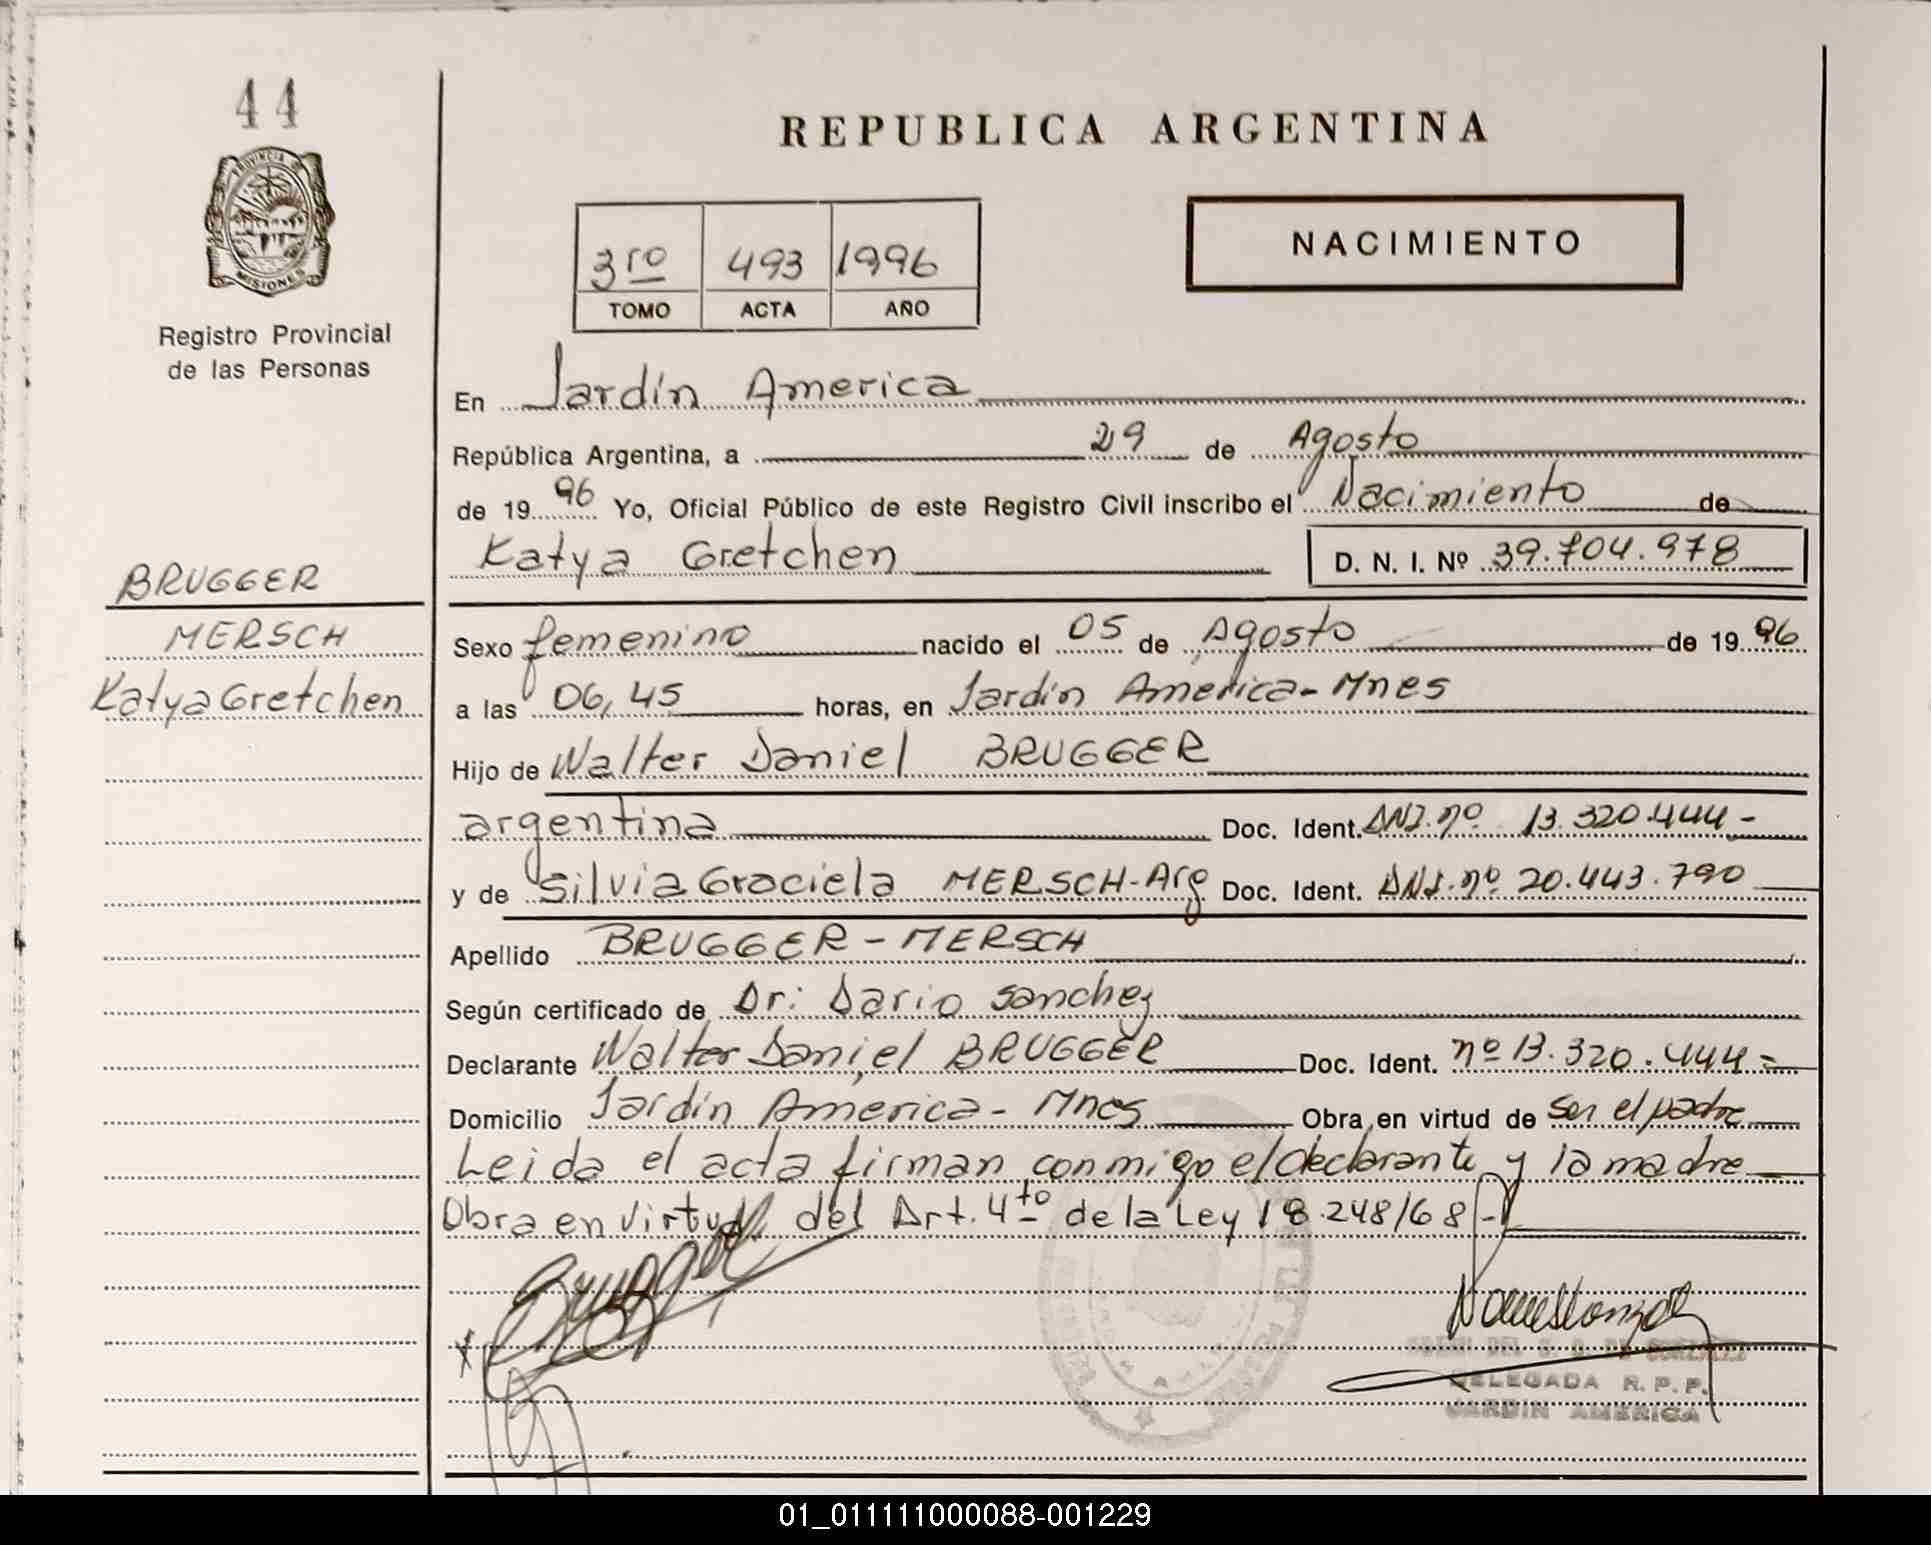 44
REPUBLICA ARGENTINA
PROVINCIA DE
MISIONES
Registro Provincial
de las Personas
NACIMIENTO
3ro 493 1996
TOMO ACTA AÑO
En Jardín America
República Argentina, a 29 de Agosto
de 1996 Yo, Oficial Público de este Registro Civil inscribo el Nacimiento de
Katya Gretchen D. N. I. Nº 39.704.978
BRUGGER
MERSCH
Katya Gretchen
Sexo femenino nacido el 05 de Agosto de 1996
a las 06,45 horas, en Jardín America-Mnes
Hijo de Walter Daniel BRUGGER
argentina Doc. Ident. DNI. nº 13.320.444-
y de Silvia Graciela MERSCH-Arg Doc. Ident. DNI. nº 20.443.790
Apellido BRUGGER-MERSCH
Según certificado de Dr: Dario Sanchez
Declarante Walter Daniel BRUGGER Doc. Ident. nº 13.320.444=
Domicilio Jardín America- Mnes Obra en virtud de ser el padre
Leida el acta firman conmigo el declarante y la madre
Obra en virtud del Art. 4to de la Ley 18.248/68-
Brugger
DELEGADA R. P. P.
JARDIN AMERICA
01_011111000088-001229